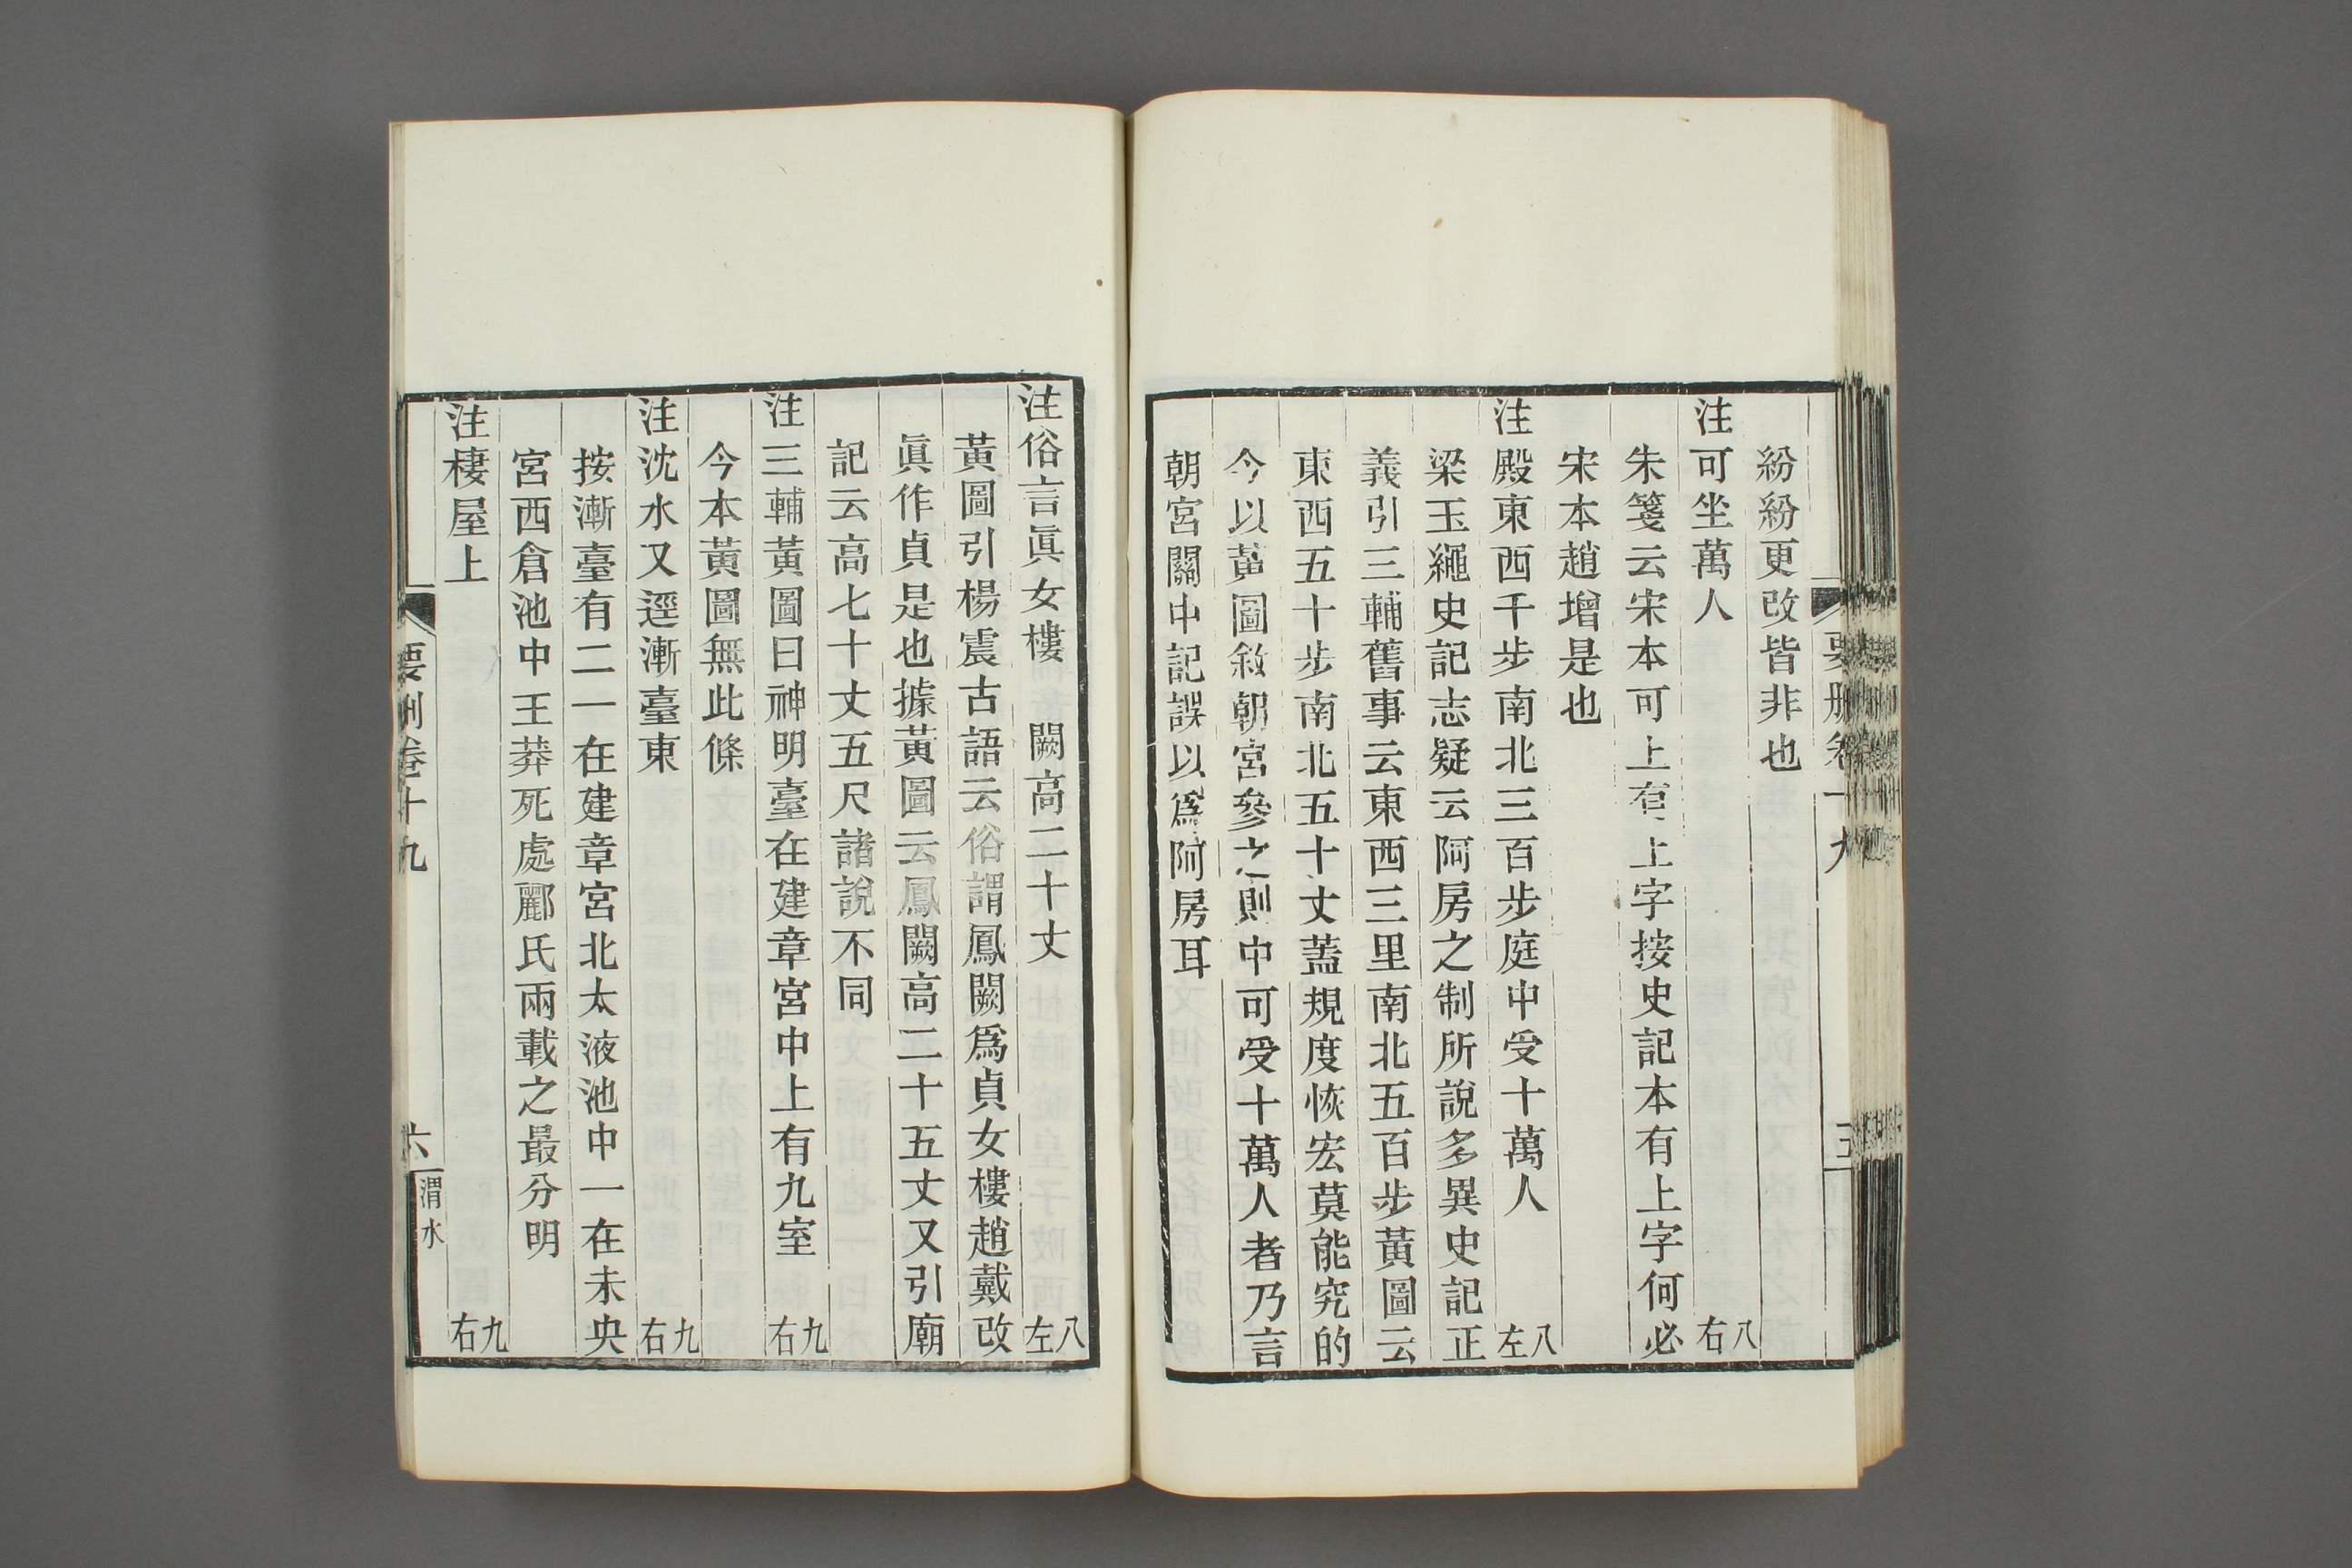 紛紛更改皆非也
注可坐萬人 八右
朱箋云宋本可上有上字按史記本有上字何必
宋本趙增是也
注殿東西千步南北三百步庭中受十萬人 八左
梁玉繩史記志疑云阿房之制所說多異史記正
義引三輔舊事云東西三里南北五百步黃圖云
東西五十步南北五十丈蓋規度恢宏莫能究的
今以黃圖敘朝宮參之則中可受十萬人者乃言
朝宮關中記誤以爲阿房耳
注俗言眞女樓 闕高二十丈 八左
黃圖引楊震古語云俗謂鳳闕爲貞女樓趙戴改
眞作貞是也據黃圖云鳳闕高二十五丈又引廟
記云高七十丈五尺諸說不同
注三輔黃圖曰神明臺在建章宮中上有九室 九右
今本黃圖無此條
注沈水又逕漸臺東 九右
按漸臺有二一在建章宮北太液池中一在未央
宮西倉池中王莽死處酈氏兩載之最分明
注棲屋上 九右
要刪卷十九 六 渭水